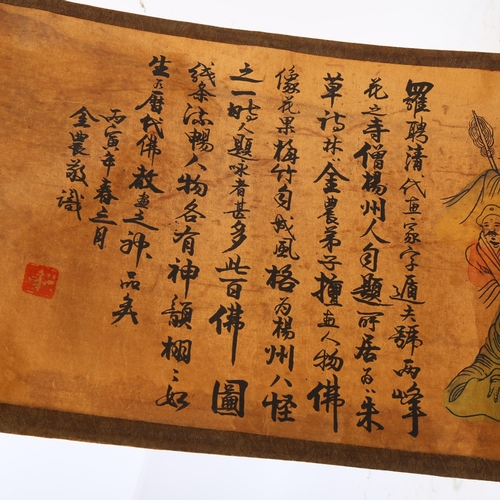 羅聘清代画家字遁夫號兩峰
花之寺僧楊州人自題所居為朱
草詩林金農弟子擅画人物佛
像花果梅竹自成風格為楊州八怪
之一時人題咏者甚多此百佛圖
线条流暢人物各有神韻栩〻如
生歷代佛教画之神品矣
丙寅年春三月
金農敬識